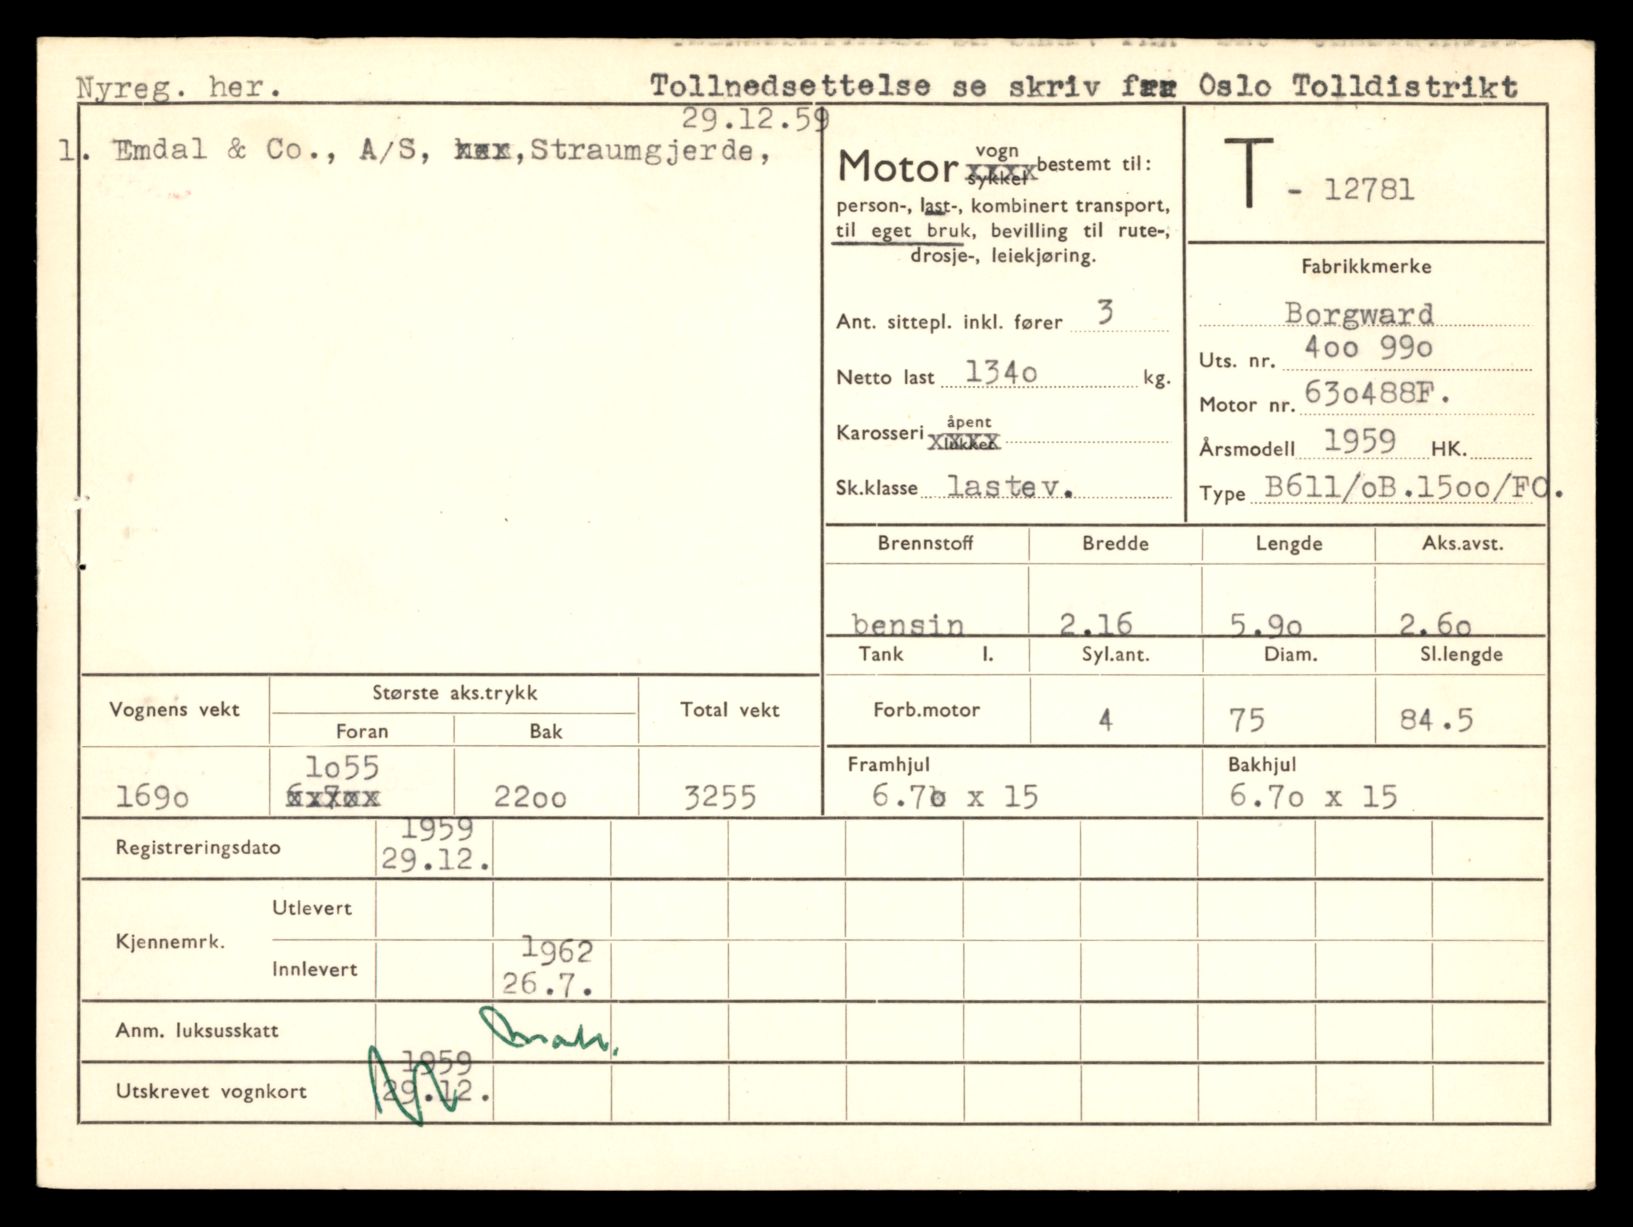 Nyreg. her.
Tollnedsettelse se skriv Oslo Tolldistrikt
29.12.59
1. Emdal & Co., A/S, ,Straumgjerde,
Motor vogn sykkel bestemt til:
person-, last-, kombinert transport,
til eget bruk, bevilling til rute-,
drosje-, leiekjøring.
Ant. sittepl. inkl. fører 3
Netto last 134o kg.
Karosseri åpent lukket
Sk.klasse lastev.
T - 12781
Fabrikkmerke
Borgward
Uts. nr. 4oo 99o
Motor nr. 63o488F.
Årsmodell 1959 HK.
Type B611/oB.15oo/FO.
Brennstoff Bredde Lengde Aks.avst.
bensin 2.16 5.9o 2.6o
Tank l. Syl.ant. Diam. Sl.lengde
Forb.motor 4 75 84.5
Framhjul Bakhjul
6.7o x 15 6.7o x 15
Vognens vekt Største aks.trykk Total vekt
Foran Bak
1o55
169o 22oo 3255
Registreringsdato 1959
29.12.
Kjennemrk. Utlevert
Innlevert 1962
26.7.
Anm. luksusskatt
Utskrevet vognkort 1959
29.12.